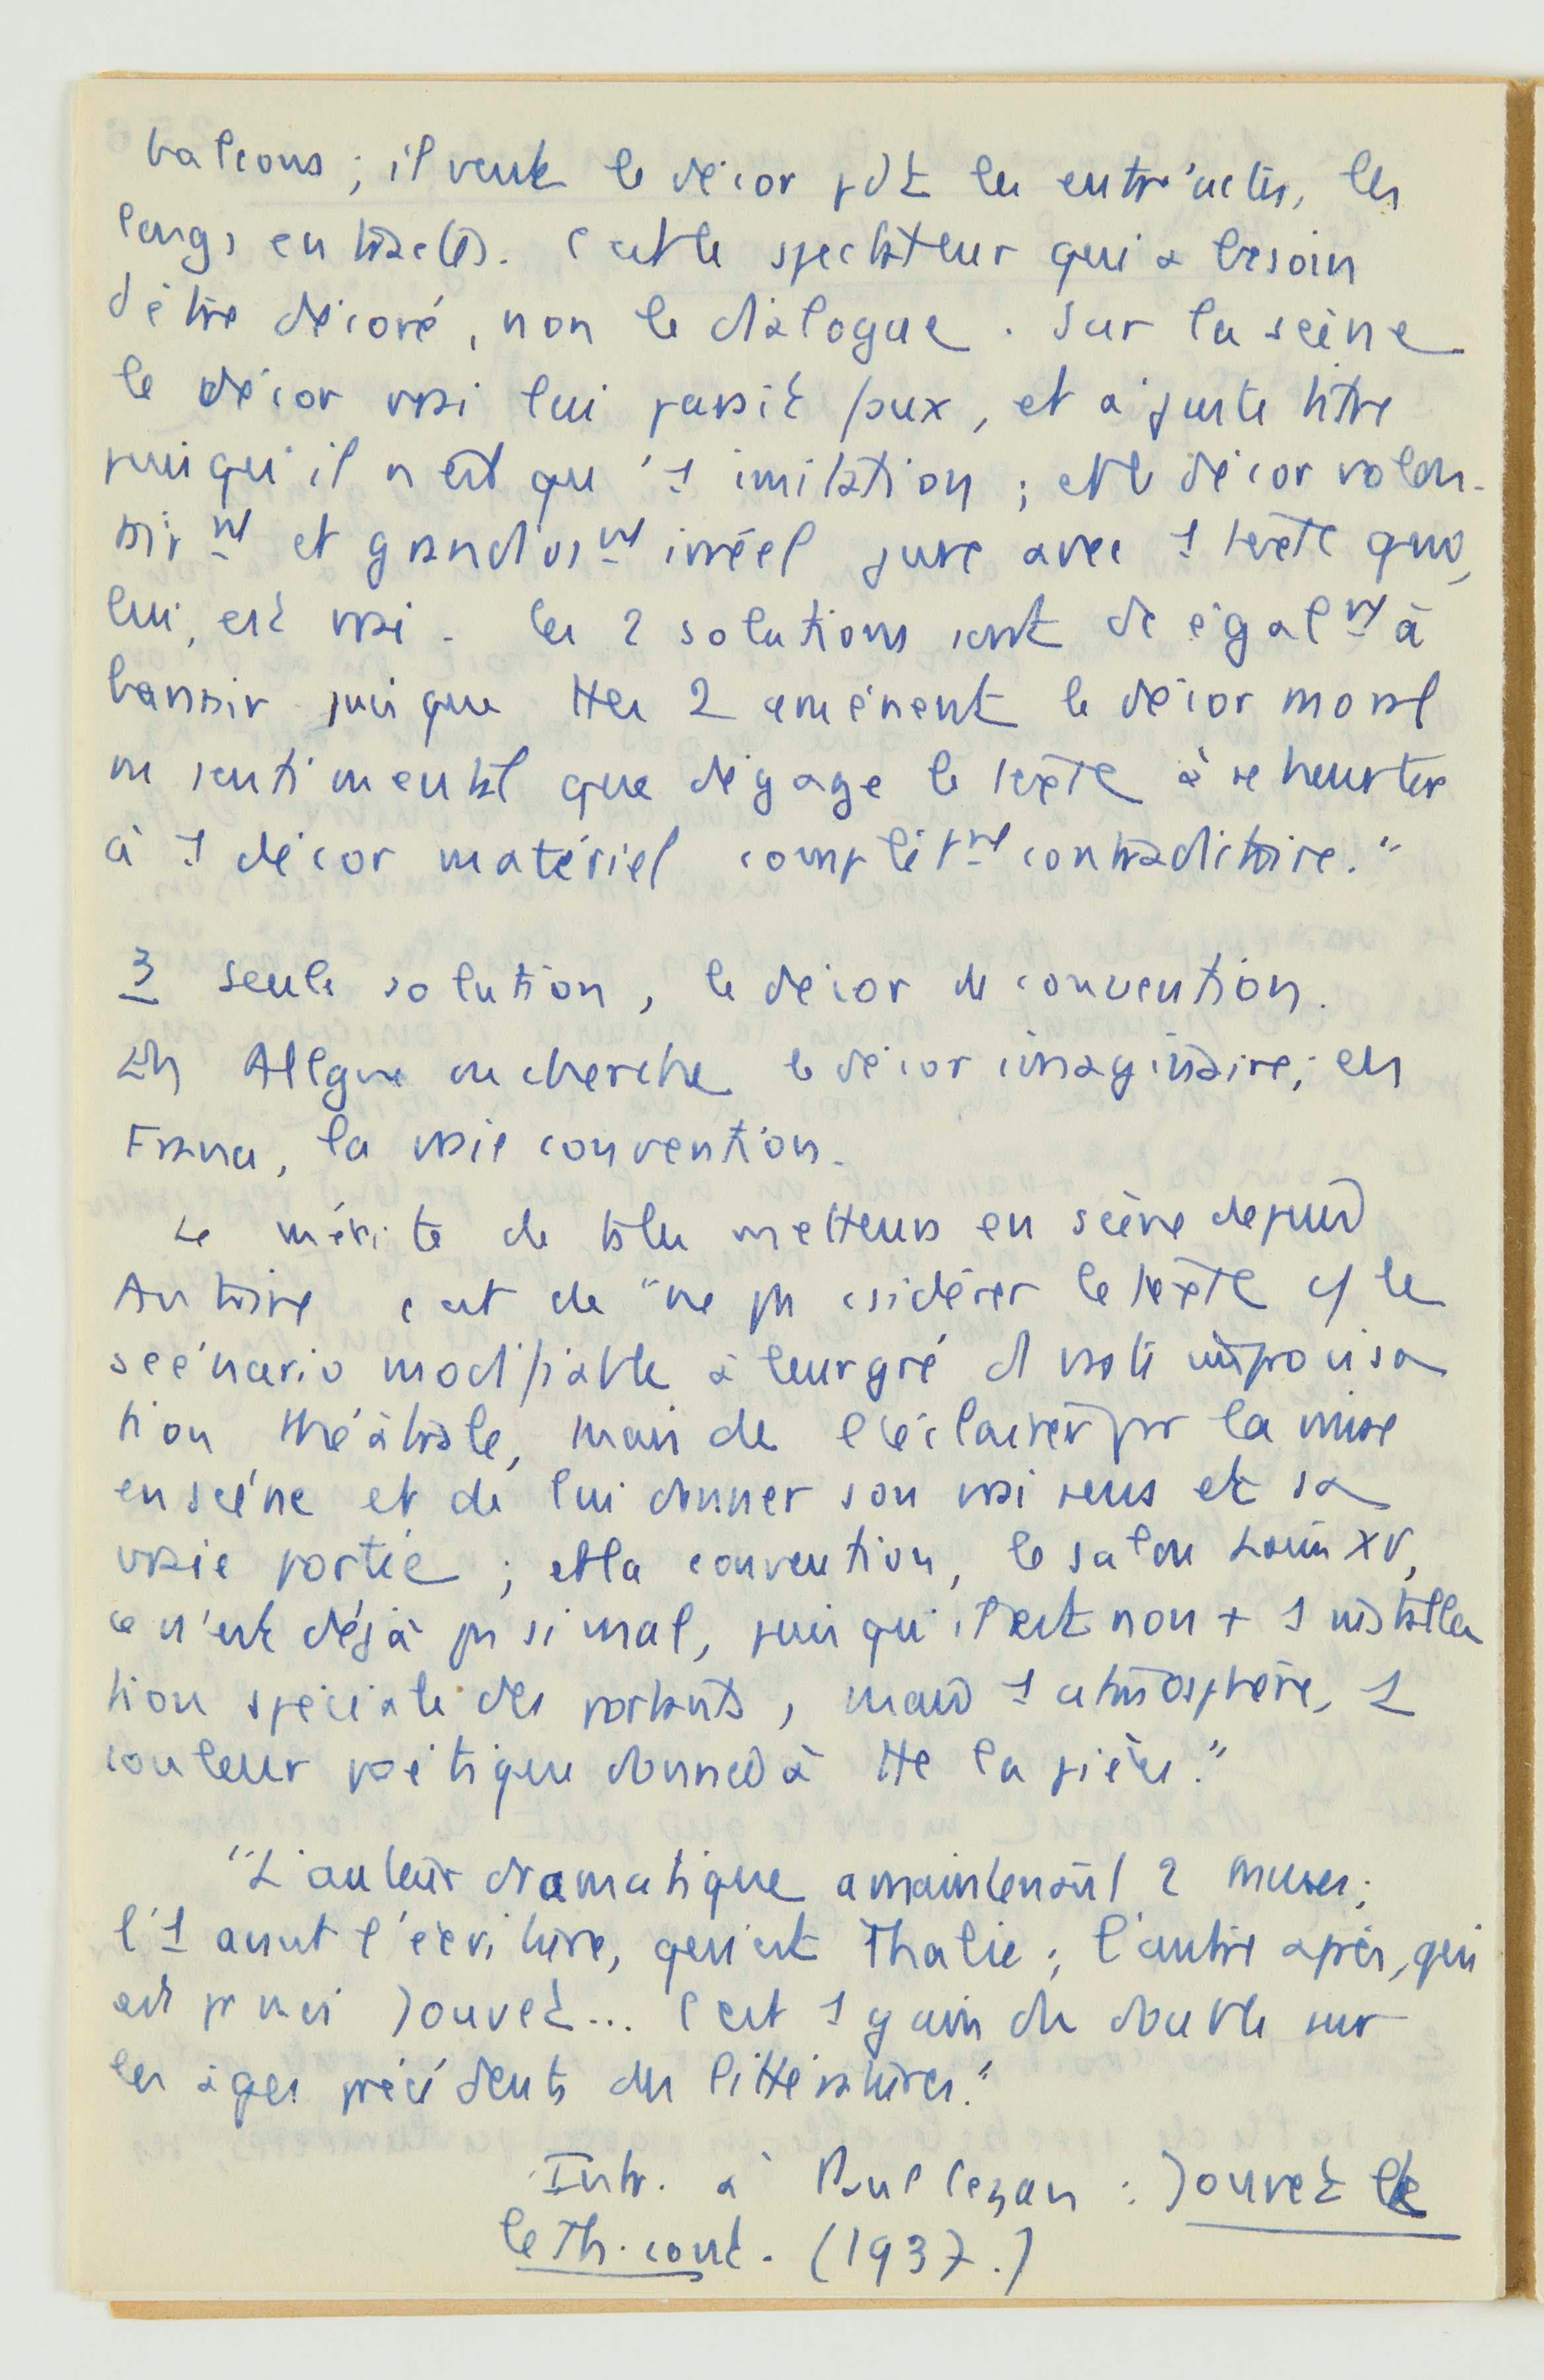 balcons ; il veut le décor pdt les entr'actes, les
longs entractes. C'est le spectateur qui a besoin
d'être décoré, non le dialogue. Sur la scène
le décor vrai lui paraît faux, et à juste titre
puisqu'il n'est qu'1 imitation ; et le décor volon-
tairmt et grandiosmt irréel jure avec 1 texte qui,
lui, est vrai. Les 2 solutions sont de égalmt à
bannir puisque ttes 2 amènent le décor moral
ou sentimental que dégage le texte à se heurter
à 1 décor matériel complètmt contradictoire."
3 Seule solution, le décor de convention.
En Allgne on cherche le décor imaginaire ; en
France, la vraie convention.
Le mérite de tels metteurs en scène depuis
Antoine c'est de "ne pas csidérer le texte cf le
scénario modifiable à leur gré d'1 vaste improvisa
tion théâtrale, mais de l'éclairer par la mise
en scène et de lui donner son vrai sens et sa
vraie portée ; et la convention, le salon Louis XV,
ce n'est déjà pas si mal, puisqu'il est non + 1 installa
tion spéciale des portants, mais 1 atmosphère, 1
couleur poétique donnée à tte la pièce."
"L'auteur dramatique a maintenant 2 muses ;
l'1 avant l'écriture, qui est Thalie ; l'autre après, qui
est pr moi Jouvet... C'est 1 gain du double sur
les âges précédents des littératures."
Intr. à Paul Cézan : Jouvet &
le Th. cont. (1937.)